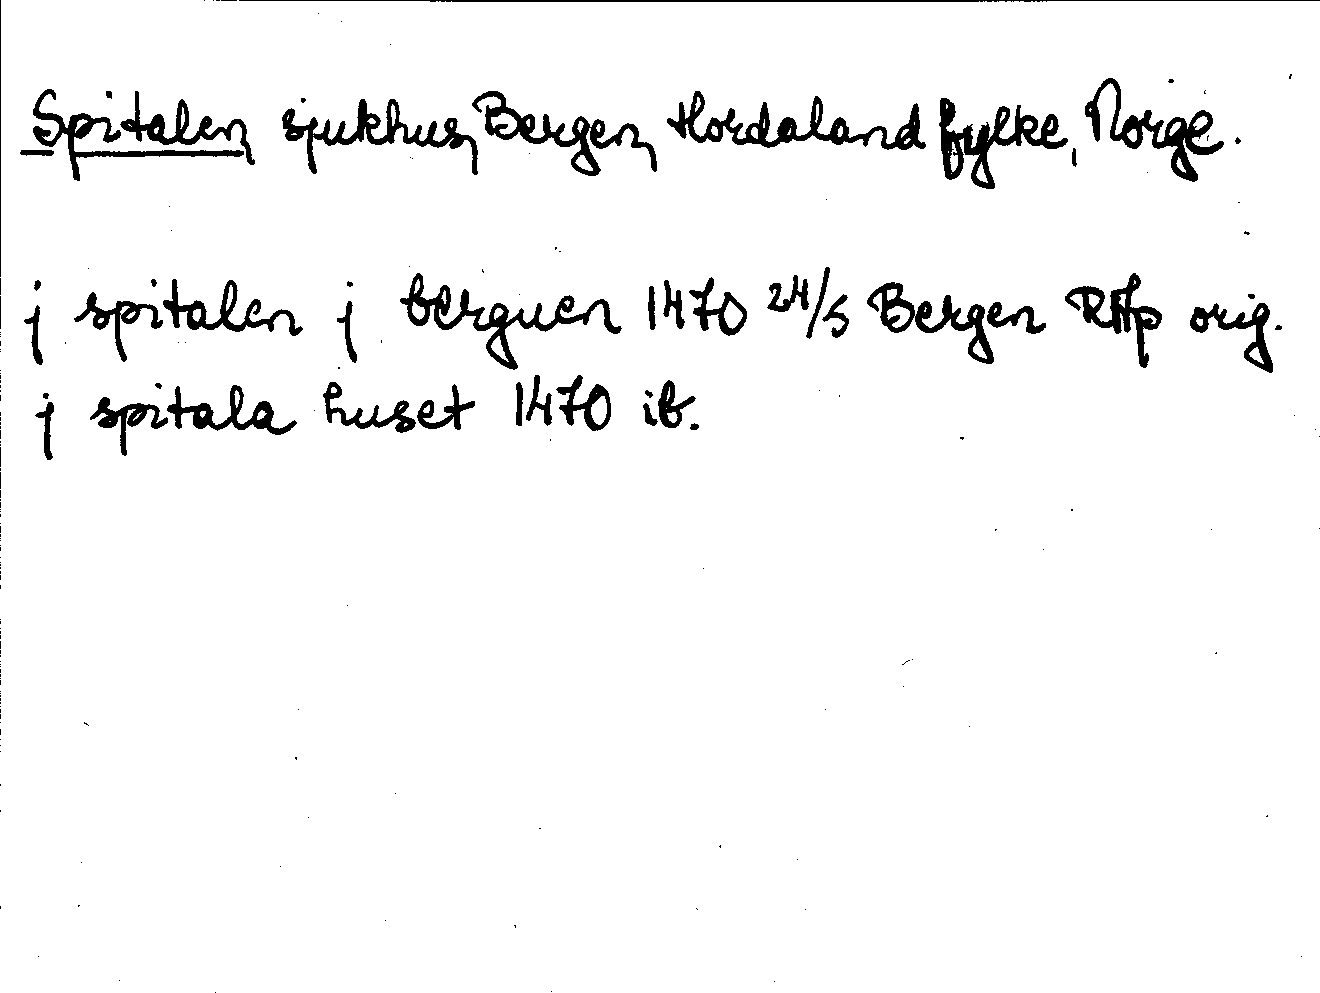 Spitalen, sjukhus, Bergen, Hordaland fylke, Norge.
j spitalen j berguen 1470 24/5 Bergen RAp orig.
j spitala huset 1470 ib.